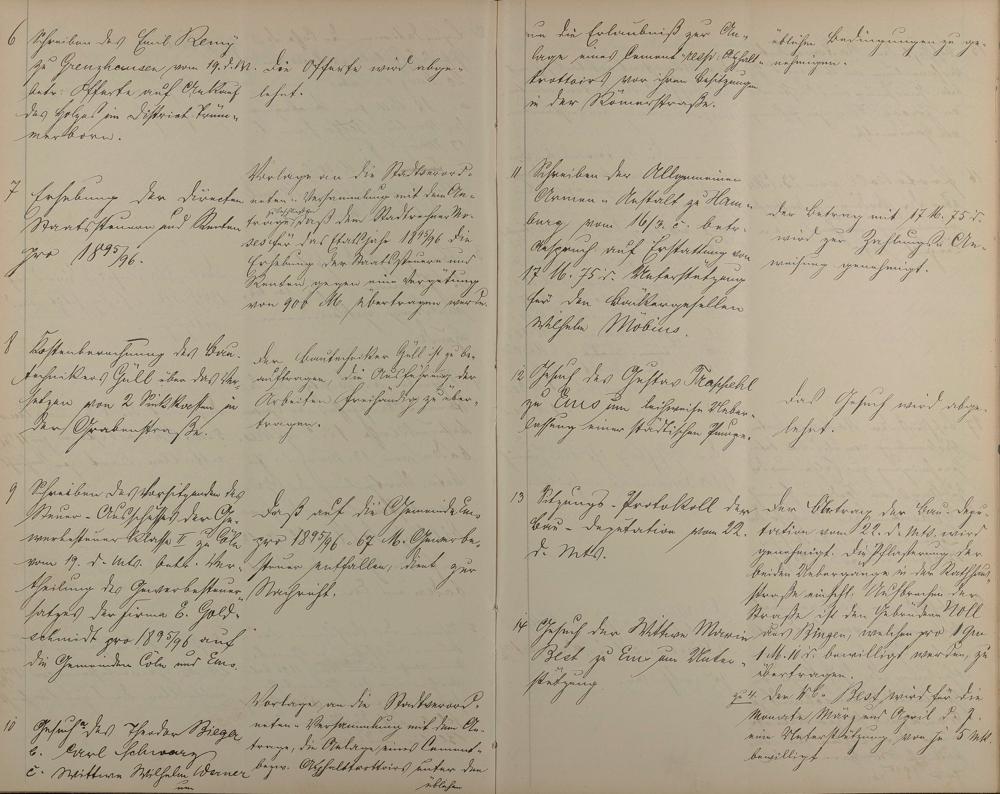 6 Schreiben des Emil Remy
zu Grenzhausen vom 19. d. M.
betr: Offerte auf Ankauf
des Holzes im District Trüm-
merborn.
Die Offerte wird abge-
lehnt.
7 Erhebung der directen
Staatssteuern und Renten
pro 1895/96.
Vorlage an die Stadtverord-
neten-Versammlung mit dem An-
trage, daß dem Stadtrechner Mo-
ses für das Etatsjahr 1895/96 die
Erhebung der Staatssteuern und
Renten gegen eine Vergütung
von 900 M. übertragen werde.
8 Kostenberechnung des Bau-
technikers Güll über das Ver-
setzen von 2 Sinkkasten in
der Grabenstraße.
Der Bautechniker Güll ist zu be-
auftragen, die Ausführung der
Arbeiten freihändig zu über-
tragen.
9 Schreiben des Vorsitzenden des
Steuer-Ausschusses der Ge-
werbesteuer Klasse I zu Cöln
vom 19. d. Mts. betr. Ver-
theilung des Gewerbesteuer-
satzes der Firma E. Gold-
schmidt pro 1895/96 auf
die Gemeinden Cöln und Ems.
Daß auf die Gemeinde Ems
pro 1895/96 67 M. Gewerbe-
steuer entfallen, dient zur
Nachricht.
10 Gesuch a. des Theodor Bieger
b. Carl Schwarz
c. Wittwe Wilhelm Werner
um
Vorlage an die Stadtverord-
neten-Versammlung mit dem An-
trage, die Anlage eines Cement-
bezw. Asphalttrottoirs unter den
üblichen
um die Erlaubniß zur An-
lage eines Cement- resp. Asphalt-
trottoirs vor ihren Besitzungen
in der Römerstraße.
üblichen Bedingungen zu ge-
nehmigen.
11 Schreiben der Allgemeinen
Armen-Anstalt zu Ham-
burg vom 16/3. c. betr.
Anspruch auf Erstattung von
17 M. 75 d. Unterstützung
für den Bäckergesellen
Wilhelm Möbius.
Der Betrag mit 17 M. 75 d.
wird zur Zahlungs-An-
weisung genehmigt.
12 Gesuch des Gustav
zu Ems um leihweise Ueber-
lassung einer städtischen Pumpe.
Das Gesuch wird abge-
lehnt.
13 Sitzungs-Protokoll der
Bau-Deputation vom 22.
d. Mts.
Der Antrag der Bau-Depu-
tation vom 22. d. Mts. wird
genehmigt. Die Pflasterung der
beiden Uebergänge in der Rathhaus-
straße Ausbrechen der
Straße ist den Gebrüdern Noll
aus Singen, welchen pro
1 M. 10 d. bewilligt werden, zu
übertragen.
14 Gesuch der Wittwe Marie
Best zu Ems um Unter-
stützung
zu 14. Der Wb. Best wird für die
Monate März und April d. J.
eine Unterstützung von je 5 Mk.
bewilligt.